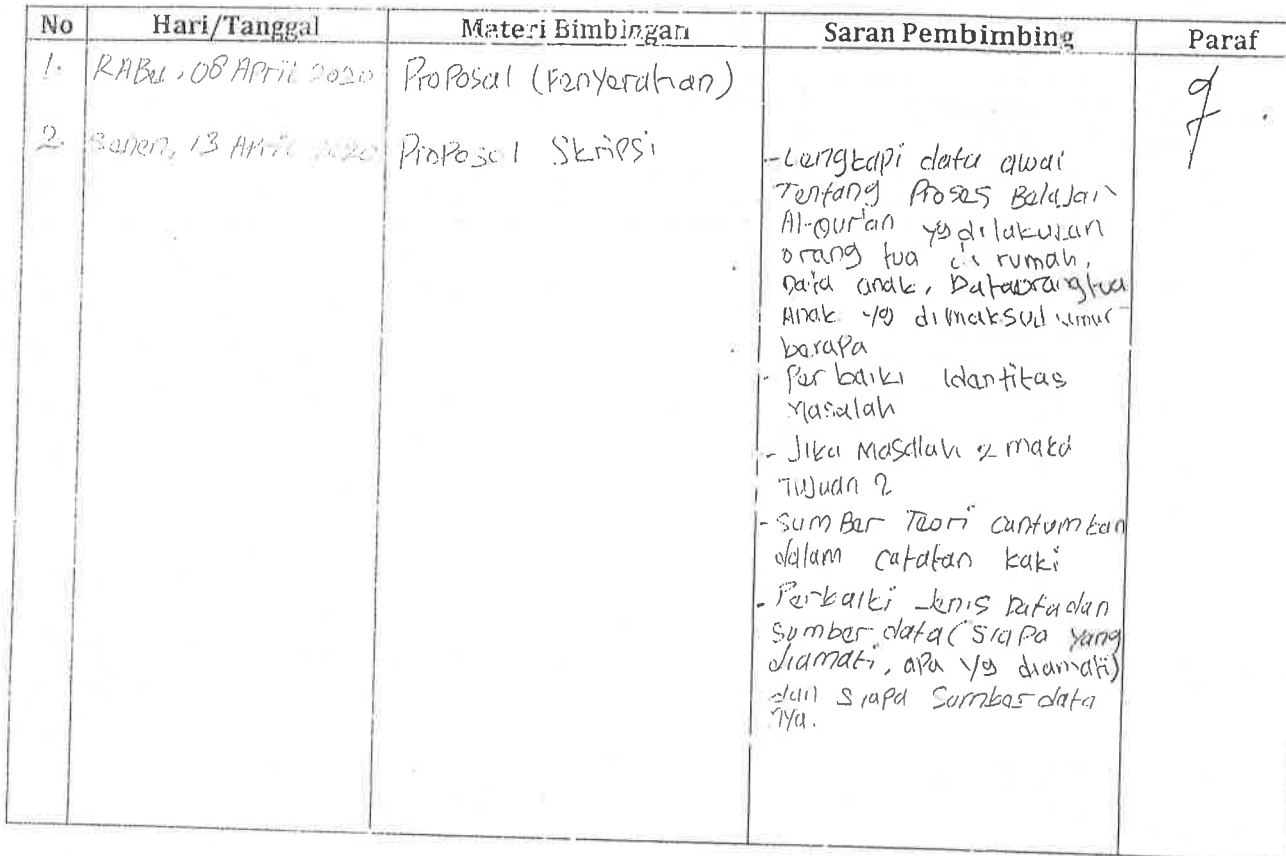 No Hari/Tanggal Materi Bimbingan Saran Pembimbing Paraf
1. RABU, 08 April 2020 Proposal (Penyerahan)
2. Senen, 13 April 2020 Proposal Skripsi
- Lengkapi data awal
Tentang Proses Belajar
Al-Qur'an yg dilakukan
orang tua di rumah,
Data anak, Data orang tua
Anak yg dimaksud umur
berapa
- Perbaiki Identitas
Masalah
- Jika Masalah 2 maka
Tujuan 2
- Sumber Teori cantumkan
dalam catatan kaki
- Perbaiki Jenis Data dan
Sumber data (Siapa yang
diamati, apa yg diamati)
dan siapa Sumber data
nya.